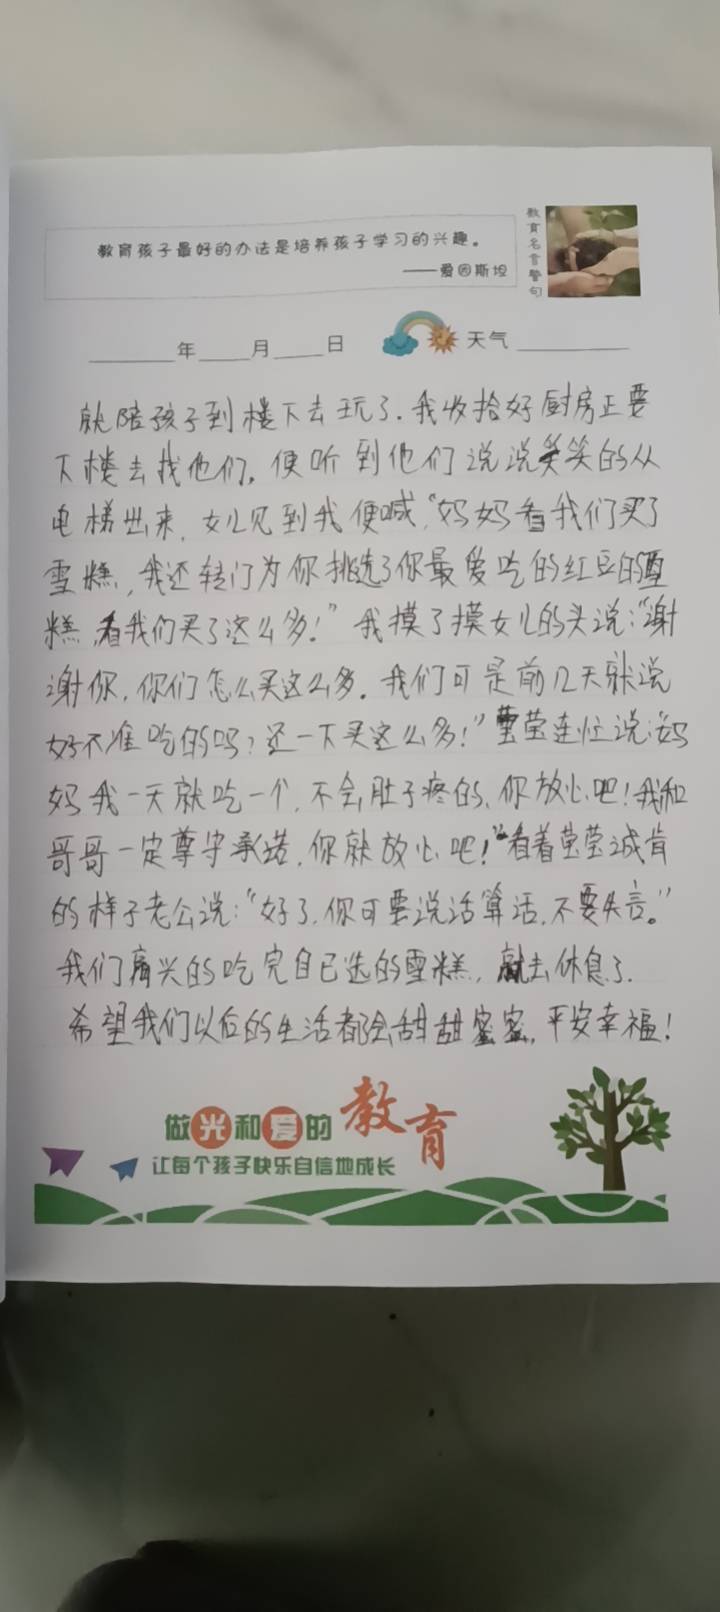 教育孩子最好的办法是培养孩子学习的兴趣。
——爱因斯坦
教育名言警句
年 月 日 天气
就陪孩子到楼下去玩了.我收拾好厨房正要
下楼去找他们,便听到他们说说笑笑的从
电梯出来,女儿见到我便喊,“妈妈看我们买了
雪糕,我还转门为你挑选了你最爱吃的红豆的雪
糕,看我们买了这么多!”我摸了摸女儿的头说:“谢
谢你,你们怎么买这么多.我们可是前几天就说
好不准吃的吗?还一下买这么多!”莹莹连忙说:“妈
妈我一天就吃一个,不会肚子疼的,你放心吧!我和
哥哥一定尊守承诺,你就放心吧!”看着莹莹诚肯
的样子老公说:“好了,你可要说话算话,不要失言。”
我们高兴的吃完自己选的雪糕,就去休息了.
希望我们以后的生活都会甜甜蜜蜜,平安幸福!
做光和爱的教育
让每个孩子快乐自信地成长